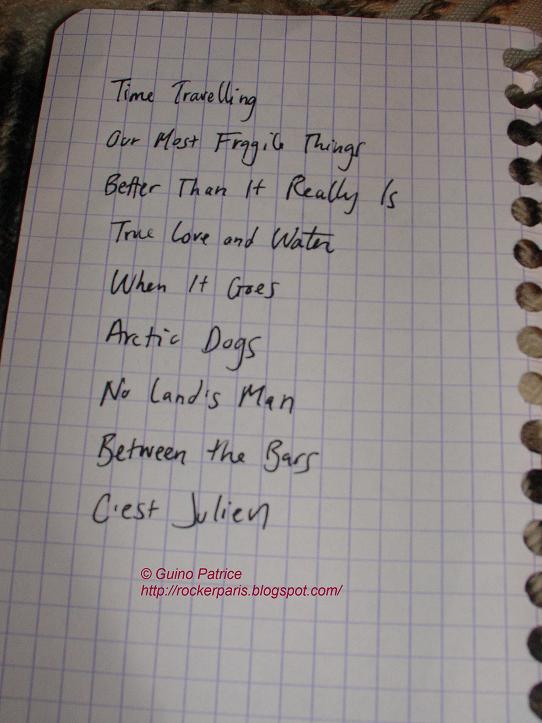 Time Travelling
Our Most Fragile Things
Better Than It Really Is
True Love and Water
When It Goes
Arctic Dogs
No Land's Man
Between the Bars
C'est Julien
© Guino Patrice
http://rockerparis.blogspot.com/